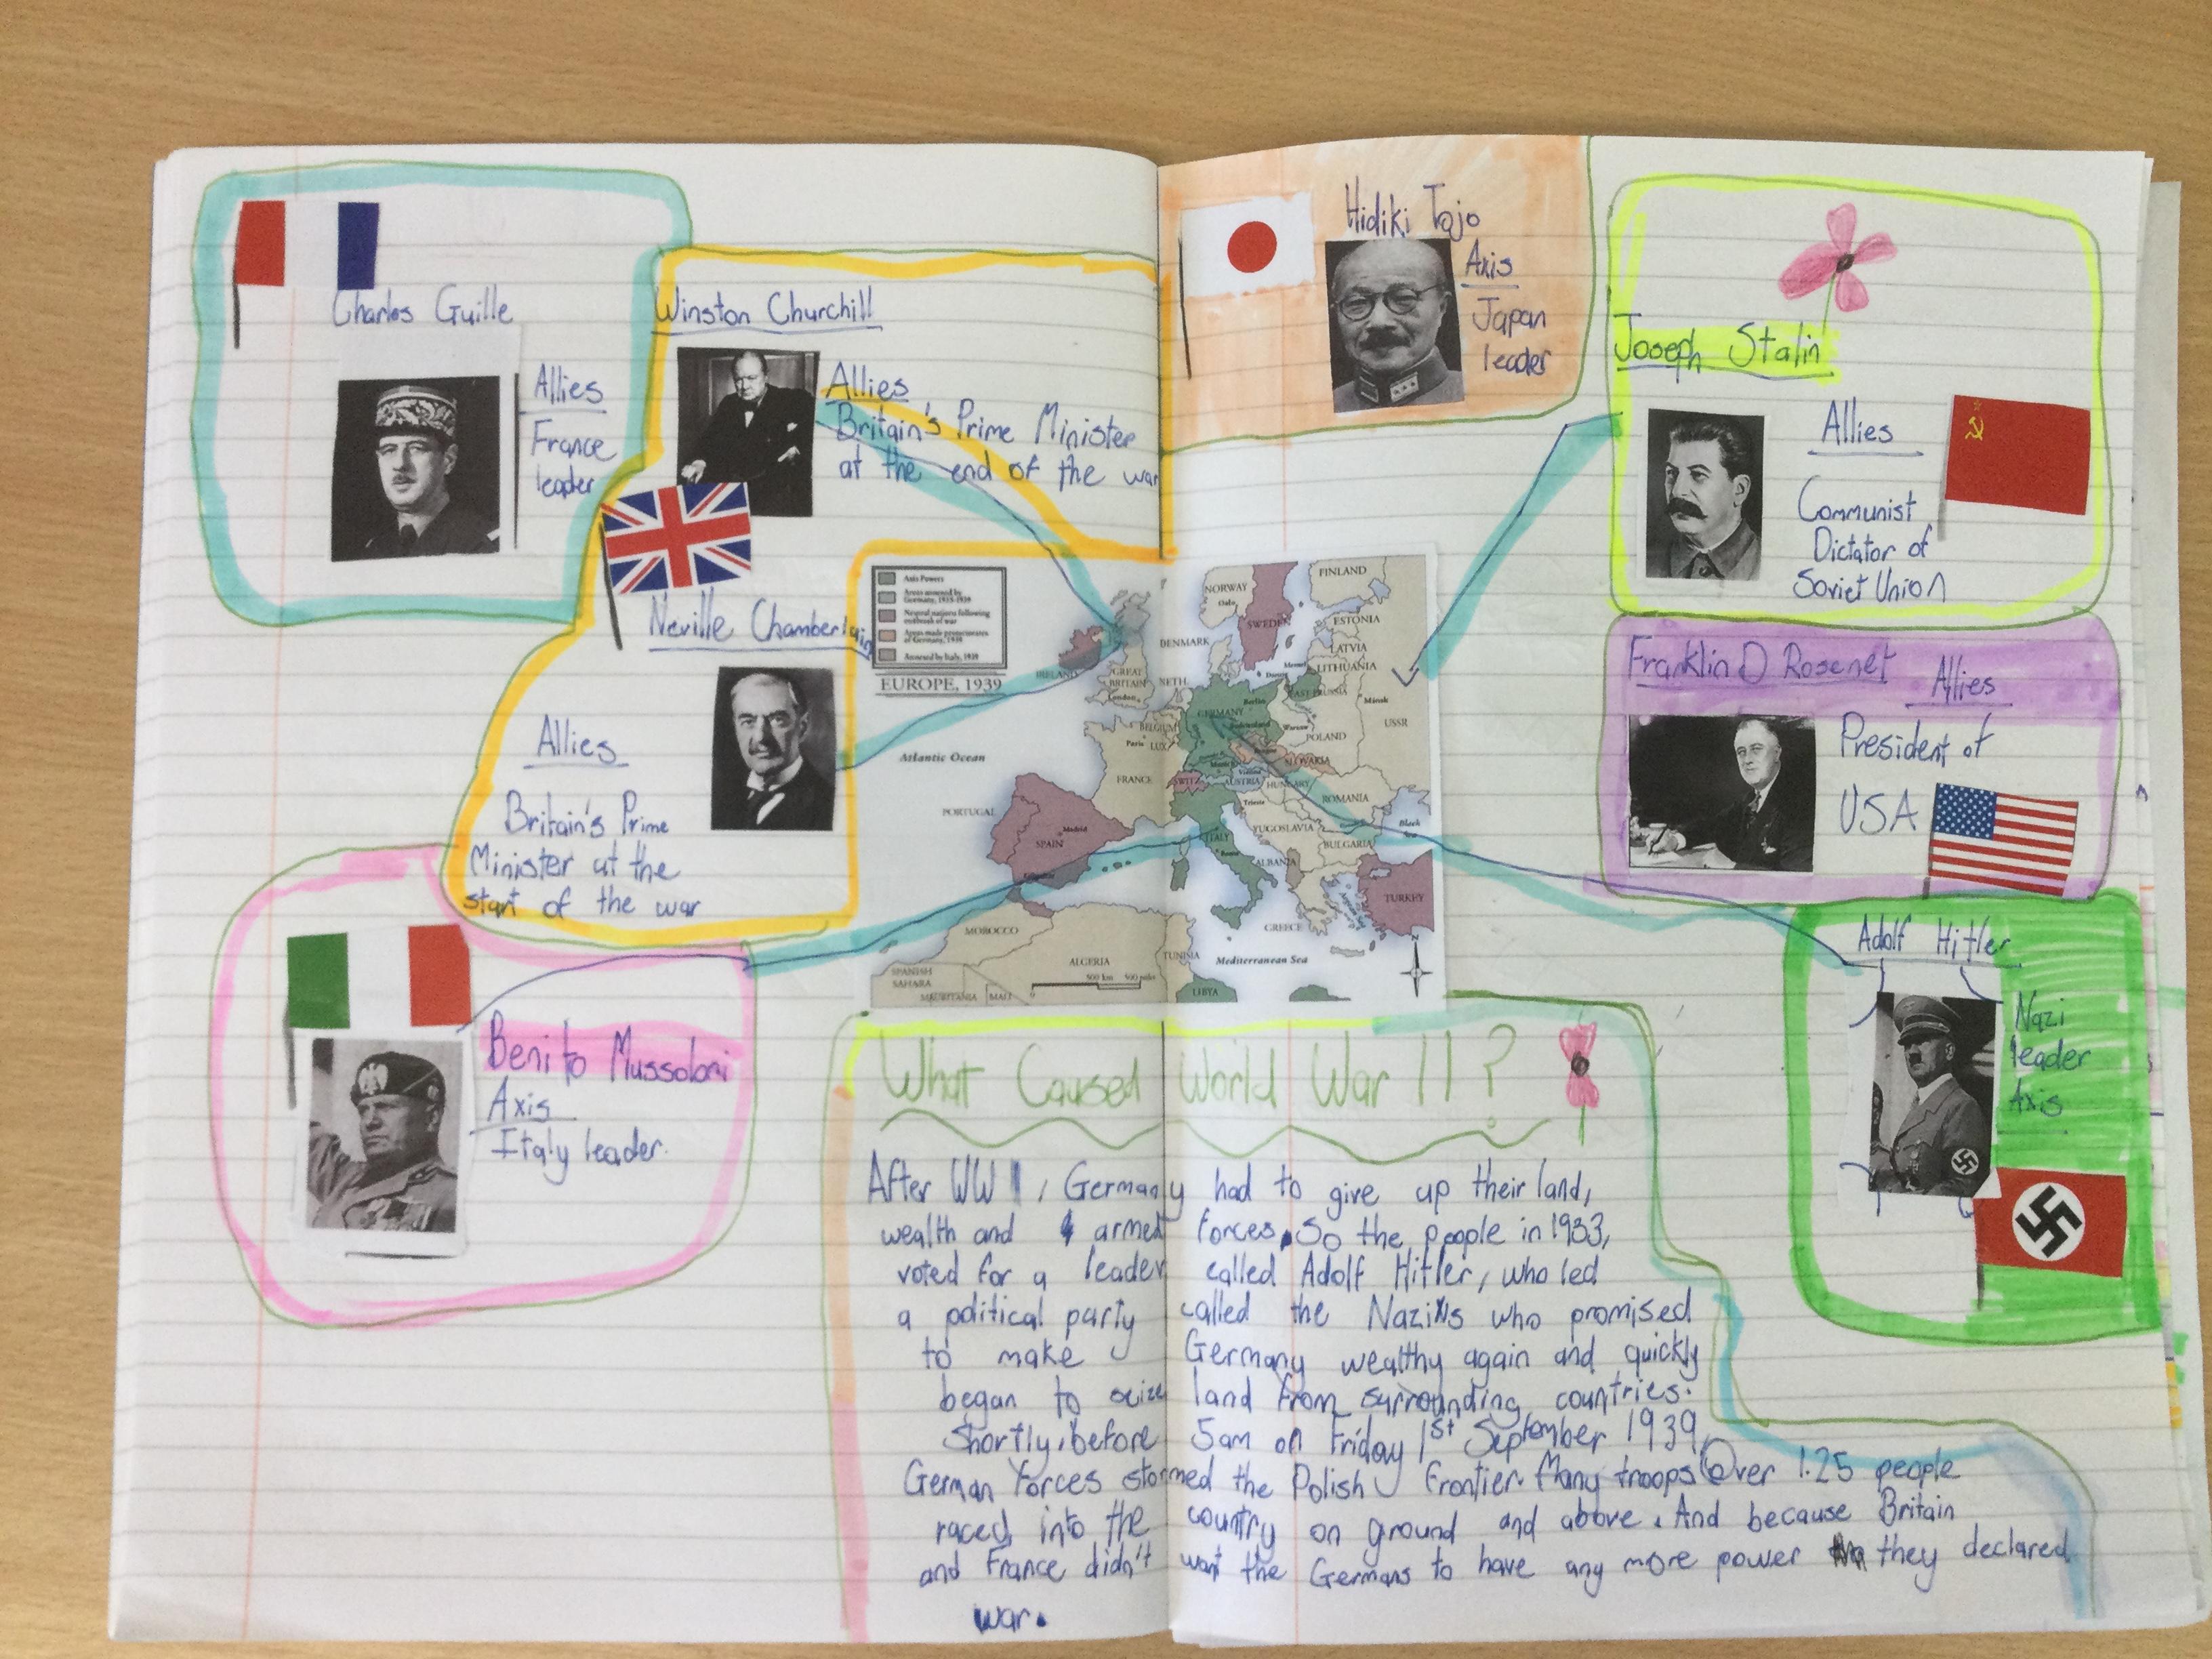 Charles Guille
Allies
France
leader
Winston Churchill
Allies
Britain's Prime Minister
at the end of the war
Neville Chamberlain
Allies
Britain's Prime
Minister at the
start of the war
Benito Mussoloni
Axis
Italy leader
Hidiki Tojo
Axis
Japan
leader
Joseph Stalin
Allies
Communist
Dictator of
Soviet Union
Franklin D Rosenet
Allies
President of
USA
Adolf Hitler
Nazi
leader
Axis
Axis Powers
Areas annexed by
Germany, 1935-1939
Neutral nations following
outbreak of war
Areas made protectorates
of Germany, 1939
Annexed by Italy, 1939
EUROPE, 1939
NORWAY
Oslo
SWEDEN
FINLAND
ESTONIA
LATVIA
LITHUANIA
DENMARK
Memel
EAST PRUSSIA
Minsk
IRELAND
GREAT
BRITAIN
London
NETH.
BELGIUM
LUX
GERMANY
Berlin
Warsaw
POLAND
USSR
Paris
FRANCE
SWITZ
Munich
Vienna
AUSTRIA
SLOVAKIA
HUNGARY
ROMANIA
Atlantic Ocean
PORTUGAL
Madrid
SPAIN
ITALY
Rome
Trieste
YUGOSLAVIA
BULGARIA
Black
Sea
ALBANIA
GREECE
TURKEY
MOROCCO
ALGERIA
TUNISIA
Mediterranean Sea
SPANISH
SAHARA
MAURITANIA
MALI
0
500 km
500 miles
LIBYA
N
What Caused World War II?
After WW I, Germany had to give up their land,
wealth and armed forces. So the people in 1933,
voted for a leader called Adolf Hitler, who led
a political party called the Nazis who promised
to make Germany wealthy again and quickly
began to seize land from surrounding countries.
Shortly, before 5am on Friday 1st September 1939,
German forces stormed the Polish frontier. Many troops Over 1.25 people
raced into the country on ground and above. And because Britain
and France didn't want the Germans to have any more power they declared
war.